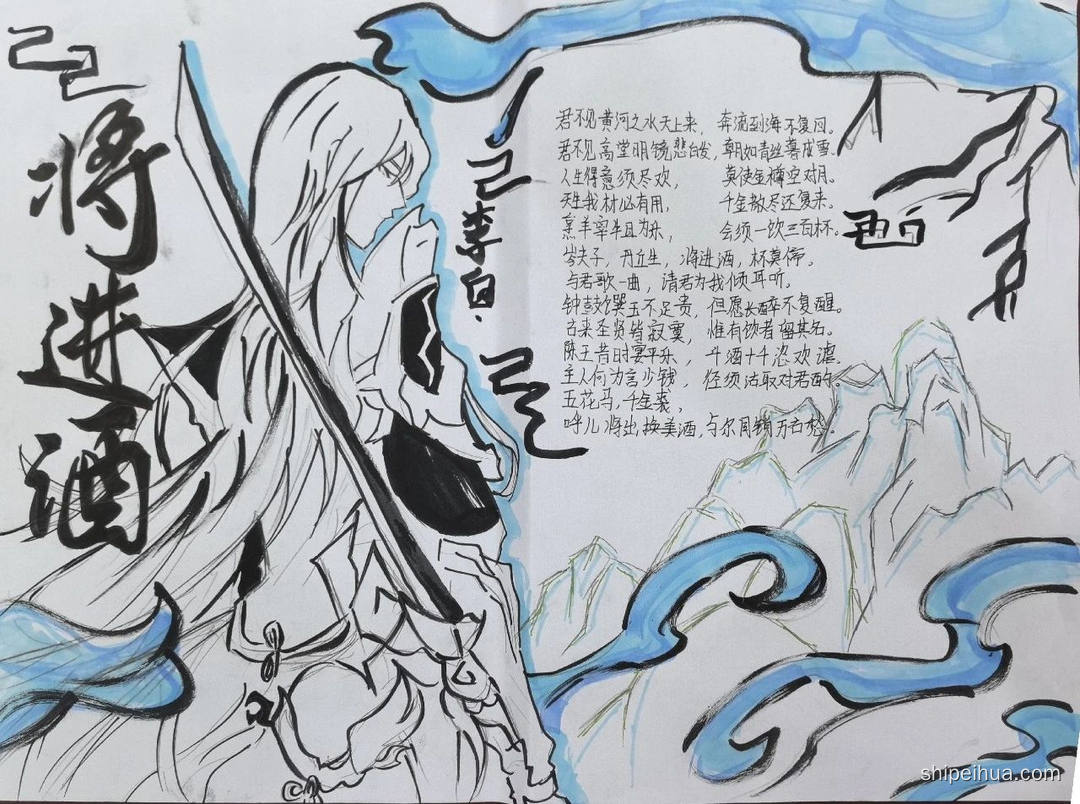 将进酒
李白
君不见黄河之水天上来，奔流到海不复回。
君不见高堂明镜悲白发，朝如青丝暮成雪。
人生得意须尽欢，莫使金樽空对月。
天生我材必有用，千金散尽还复来。
烹羊宰牛且为乐，会须一饮三百杯。
岑夫子，丹丘生，将进酒，杯莫停。
与君歌一曲，请君为我倾耳听。
钟鼓馔玉不足贵，但愿长醉不复醒。
古来圣贤皆寂寞，惟有饮者留其名。
陈王昔时宴平乐，斗酒十千恣欢谑。
主人何为言少钱，径须沽取对君酌。
五花马，千金裘，
呼儿将出换美酒，与尔同销万古愁。
shipeihua.com